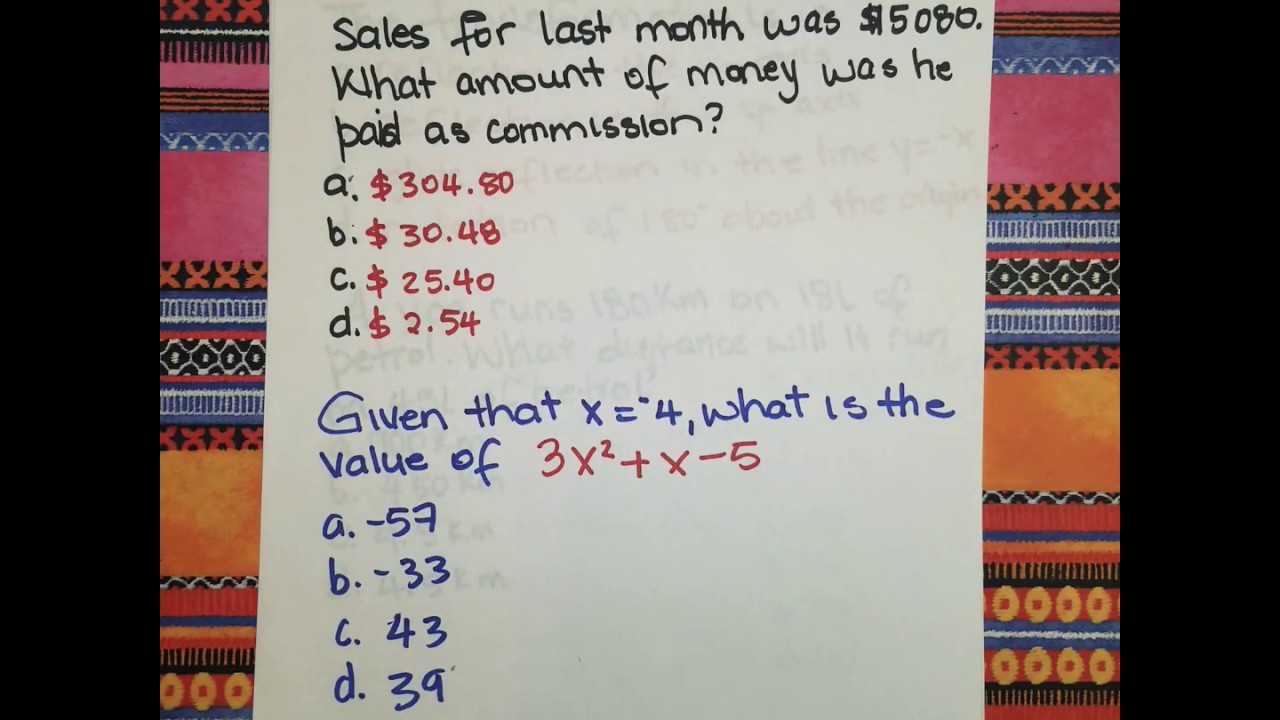 Sales for last month was $5080.
What amount of money was he
paid as commission?
a. $304.80
b. $30.48
c. $25.40
d. $2.54
Given that x = -4, what is the
value of 3x² + x - 5
a. -57
b. -33
c. 43
d. 39